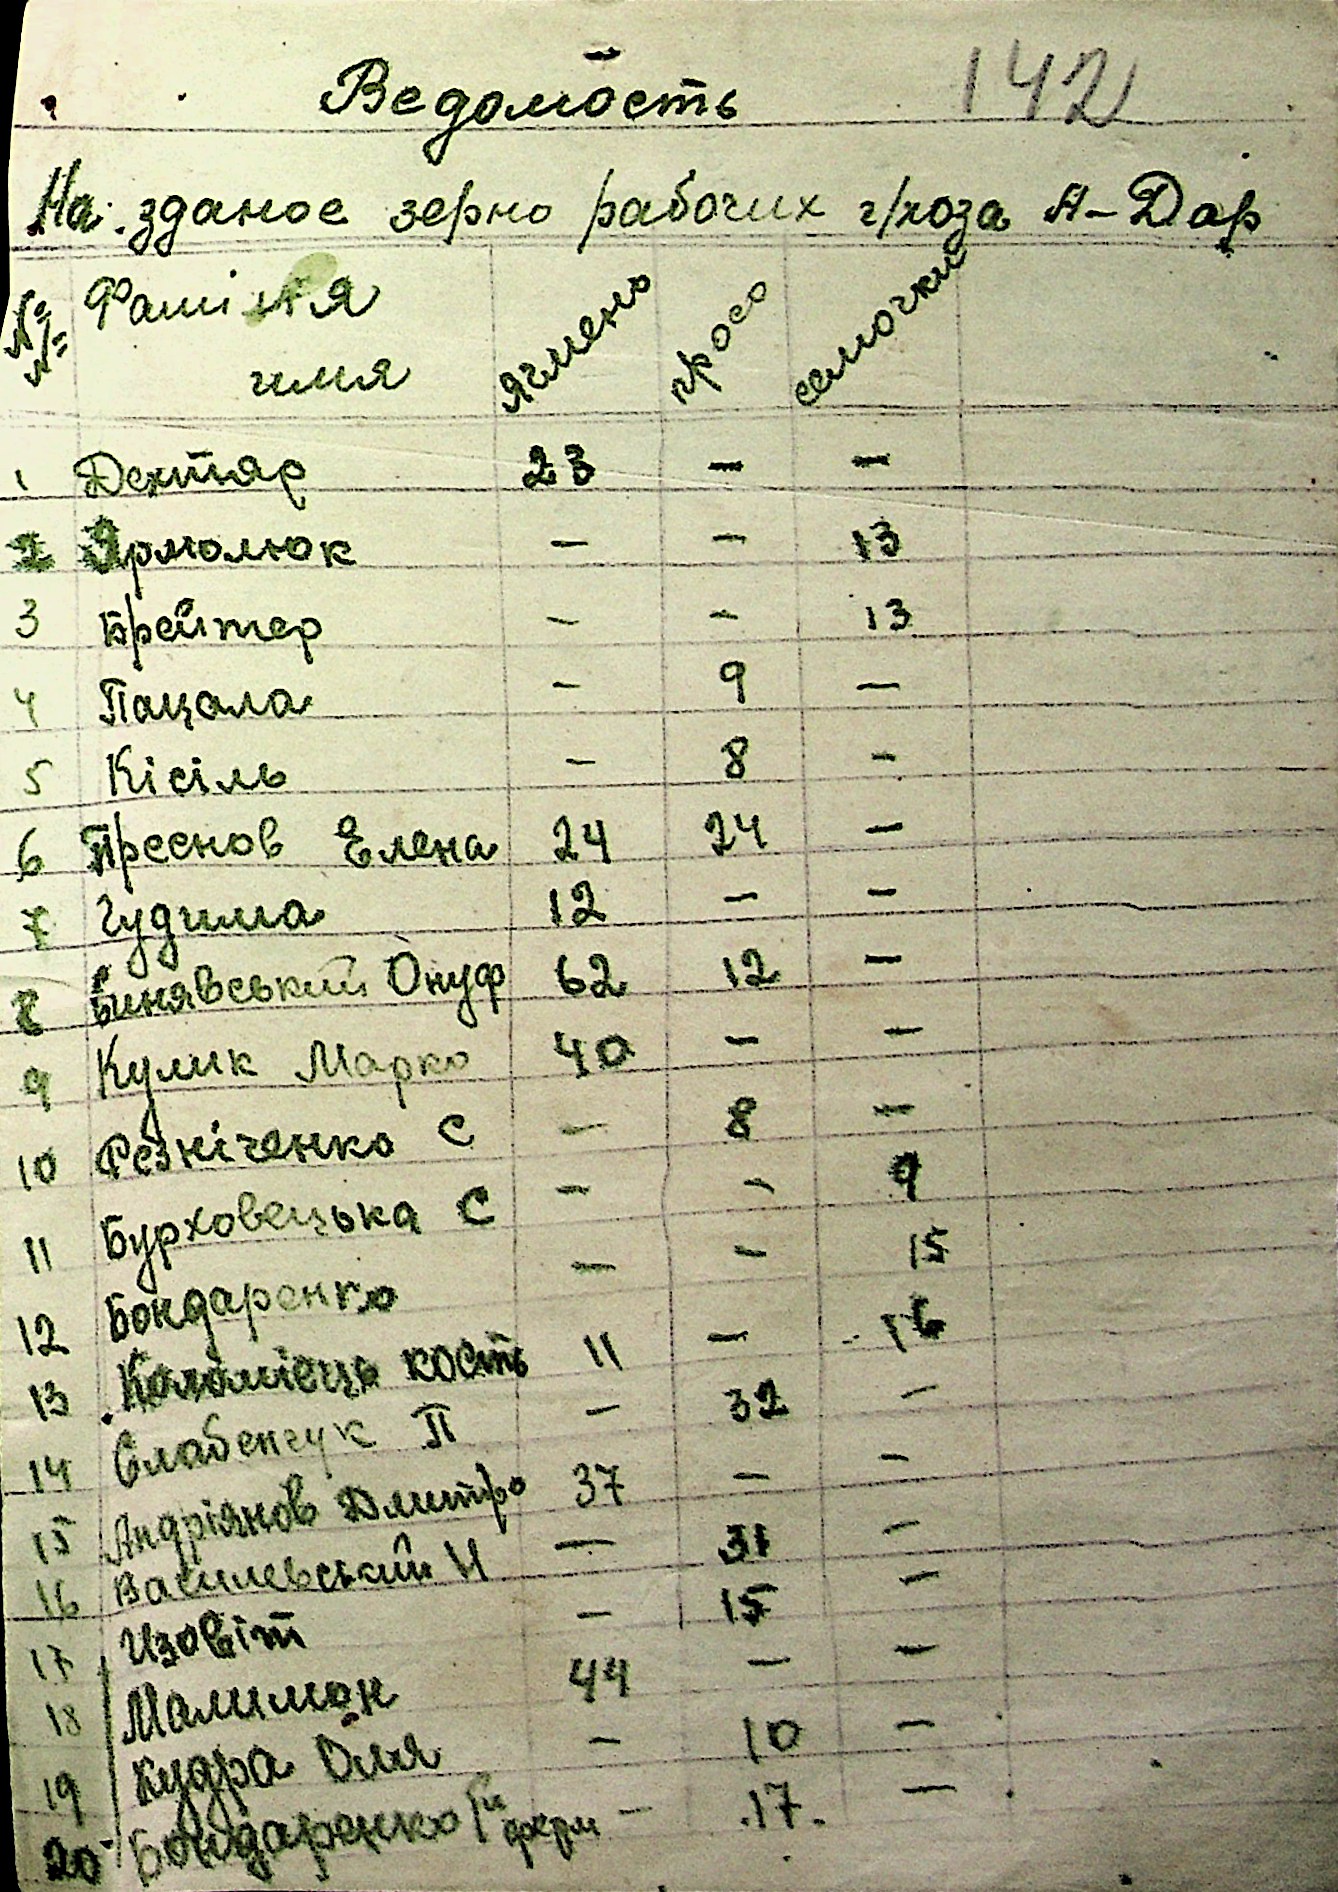 142
Ведомость
На зданое зерно рабочих г/хоза А-Дар
№ № Фамілія имя ячмень просо семочки
1 Дехтяр 23 — —
2 Ярмолюк — — 13
3 Брейтер — — 13
4 Пацала — 9 —
5 Кісіль — 8 —
6 Преснов Елена 24 24 —
7 Чудима 12 — —
8 Бинявський Онуф 62 12 —
9 Кулик Марко 40 — —
10 Резніченко С — 8 —
11 Бурховецька С — — 9
12 Бондаренко — — 15
13 Коломіець кость 11 — 16
14 Слабенчук П — 32 —
15 Андріянов Дмитро 37 — —
16 Василевський Н — 31 —
17 Изовіт — 15 —
18 Малиман 44 — —
19 Кудра Оля — 10 —
20 Бондаренко ферм — 17. —